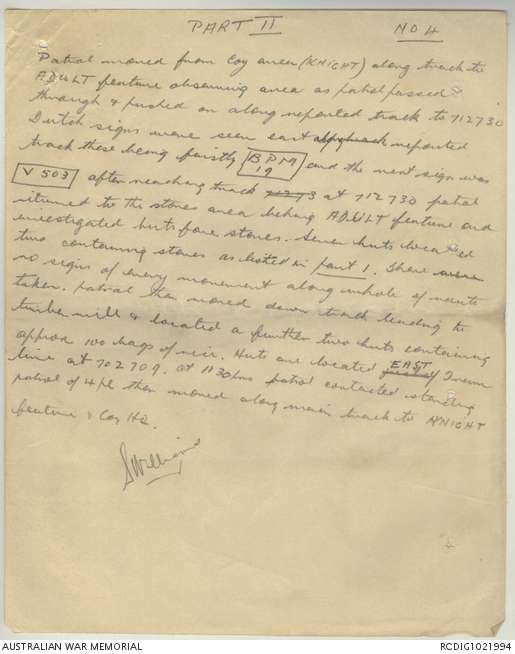 PART II NO 4
Patrol moved from Coy area (KNIGHT) along track to
ADULT feature observing area as patrol passed
through & pushed on along reported track to 712730
Dutch signs were seen east reported
track these being firstly BPM 19 and the next sign was
V 503 after reaching track at 712730 patrol
returned to the stores area behind ADULT feature and
investigated huts for stores. Seven huts located
two containing stores as listed in part 1. There were
no signs of enemy movement along whole of route
taken. Patrol then moved down track leading to
timber mill & located a further two huts containing
approx 100 bags of rice. Huts are located EAST of Tram
line at 702709. At 1130 hrs patrol contacted standing
patrol of 4 Pl then moved along main track to KNIGHT
feature & Coy HQ.
S Williams
AUSTRALIAN WAR MEMORIAL RCDIG1021994